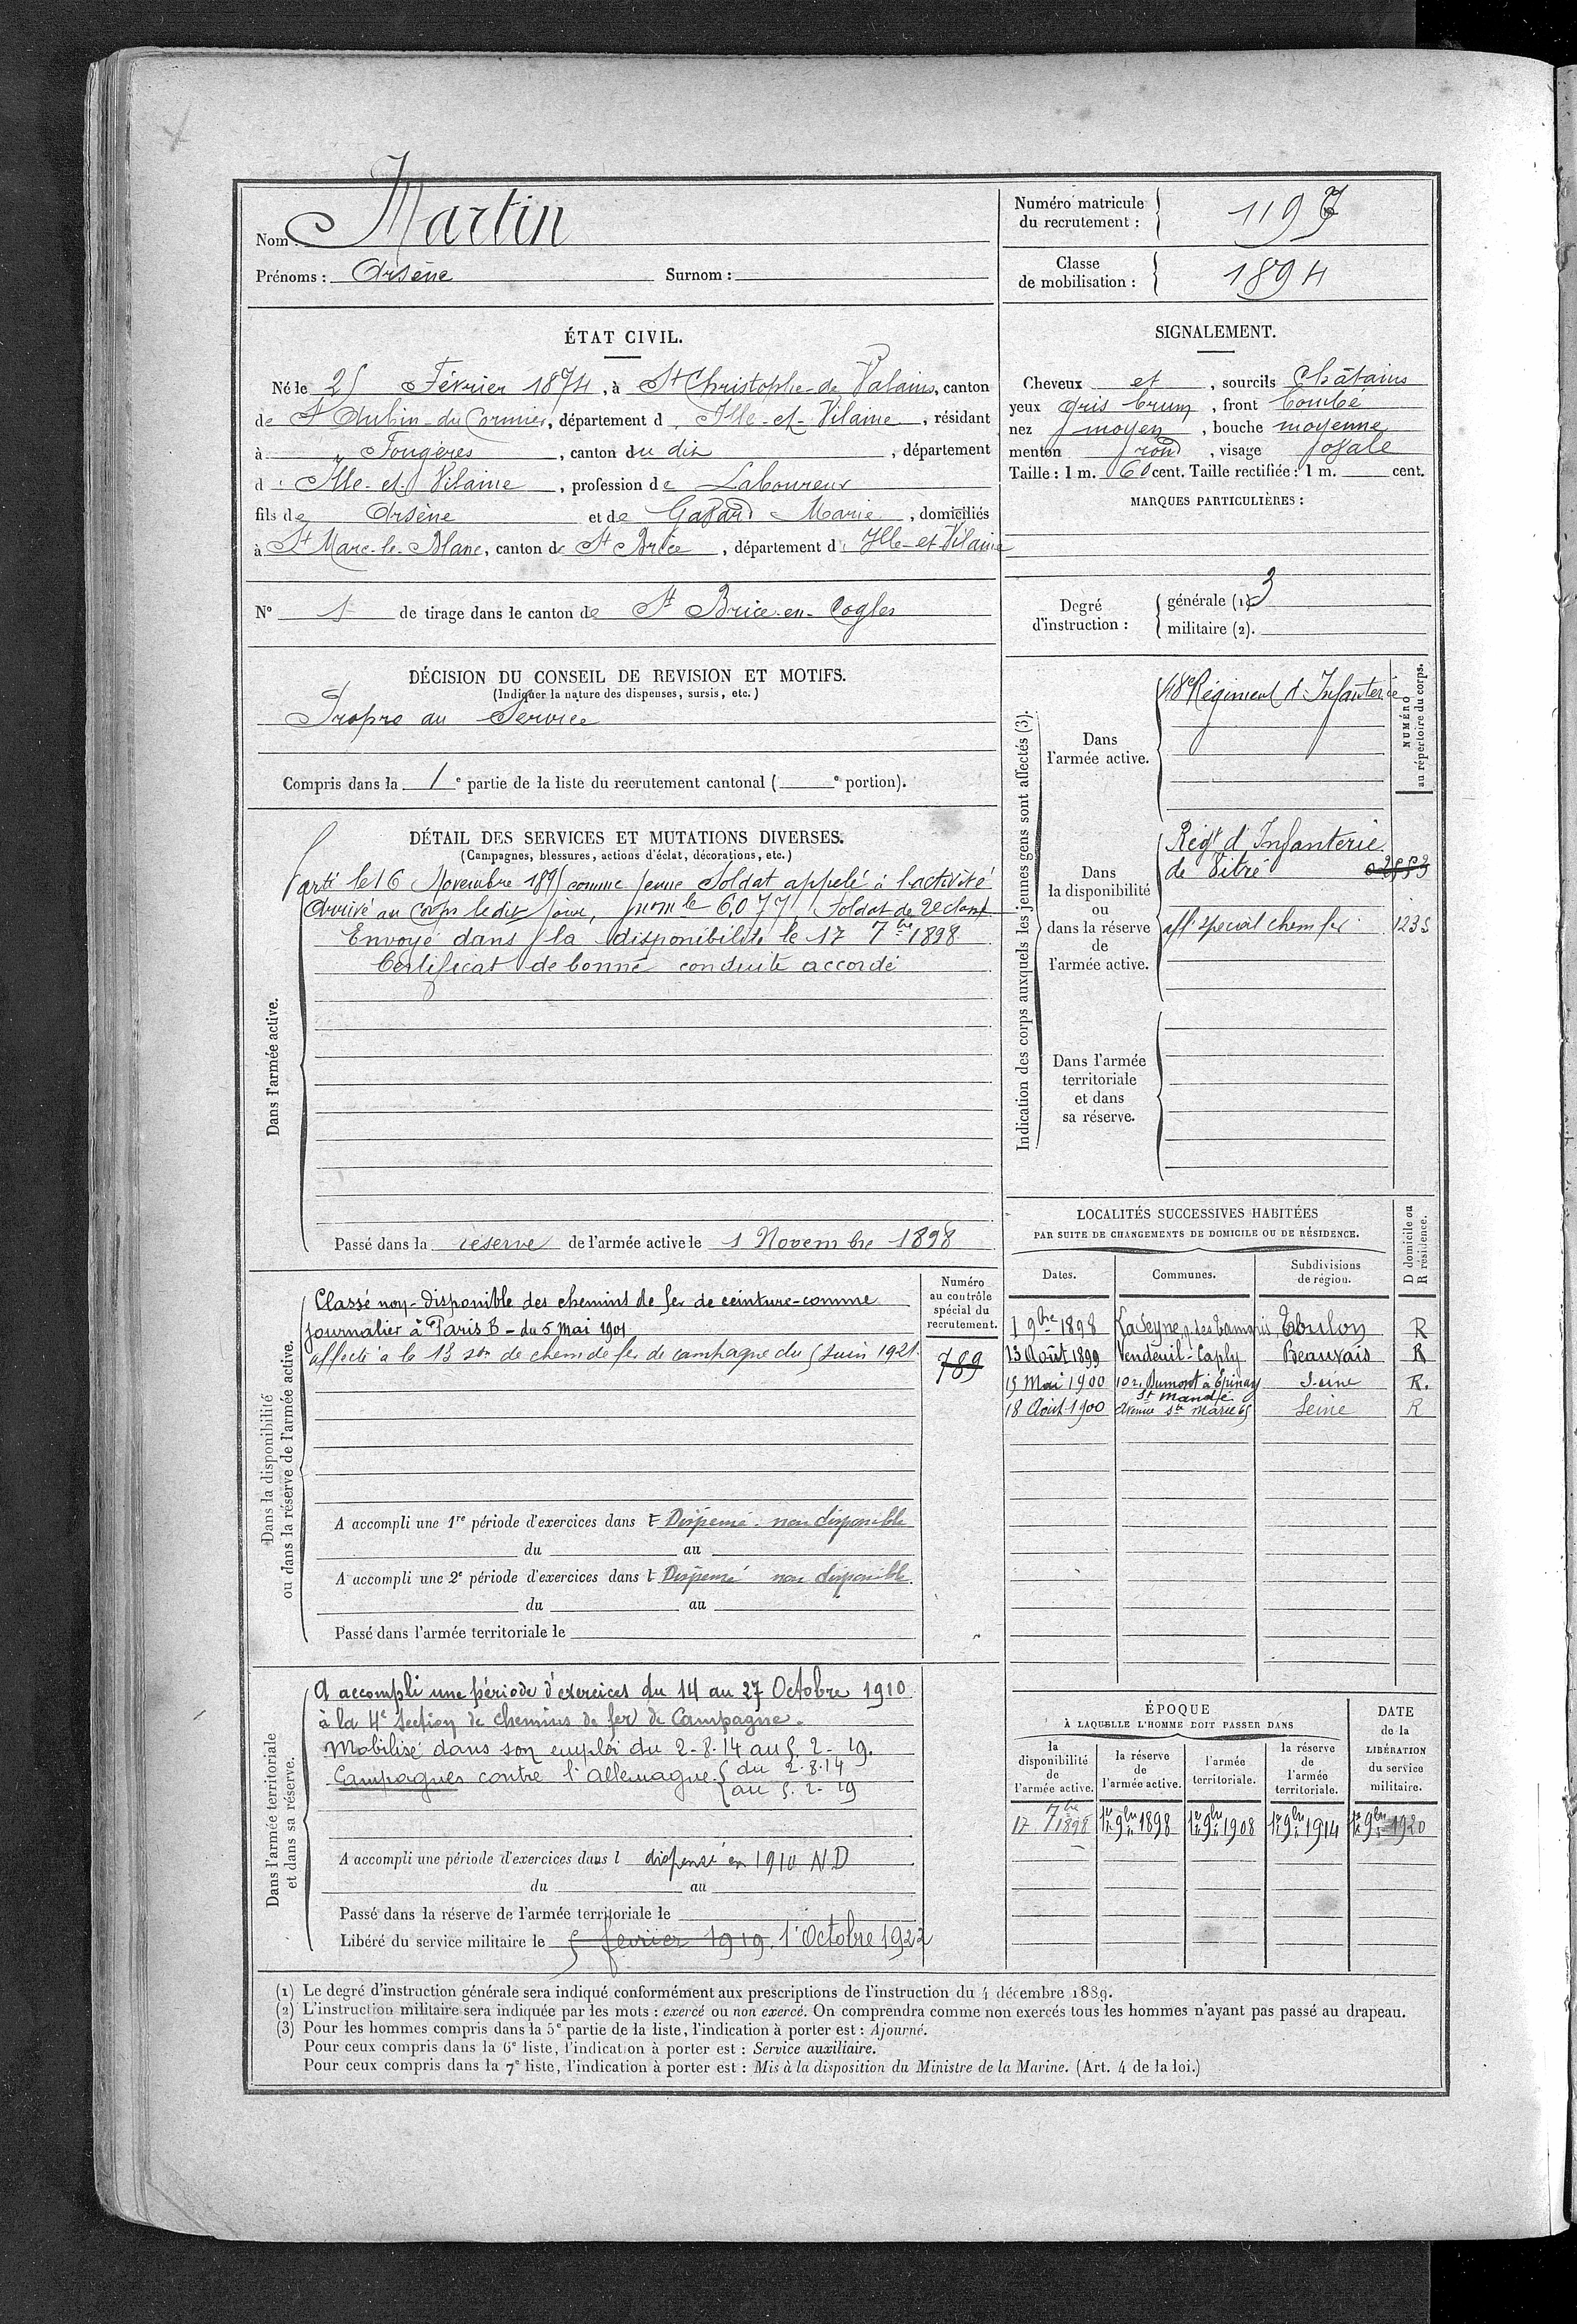 Nom : Martin
Prénoms : Arsène Surnom :
Numéro matricule du recrutement : 1197
Classe de mobilisation : 1894
ÉTAT CIVIL.
Né le 25 Février 1874, à St Christophe-de Valains, canton
de St Aubin-du Cormier, département d Ille-et-Vilaine, résidant
à Fougères, canton du dit, département
d Ille-et-Vilaine, profession de Laboureur
fils de Arsène et de Marie, domiciliés
à St Marc-le-Blanc, canton de St Brice, département d Ille-et-Vilaine
N° de tirage dans le canton de St Brice-en-Cogles
DÉCISION DU CONSEIL DE REVISION ET MOTIFS.
(Indiquer la nature des dispenses, sursis, etc.)
Propre au Service
Compris dans la 1e partie de la liste du recrutement cantonal ( e portion).
SIGNALEMENT.
Cheveux et, sourcils Châtains
yeux gris brun, front bombé
nez moyen, bouche moyenne
menton rond, visage
Taille : 1 m. 60 cent. Taille rectifiée : 1 m. cent.
MARQUES PARTICULIÈRES :
Degré d'instruction :
générale (1). 3
militaire (2).
DÉTAIL DES SERVICES ET MUTATIONS DIVERSES.
(Campagnes, blessures, actions d'éclat, décorations, etc.)
Dans l'armée active.
Parti le 16 Novembre 1895 comme jeune Soldat appelé à l'activité
Arrivé au Corps le dit jour, n° m le 6,077 Soldat de 2e classe
Envoyé dans la disponibilité le 17 7bre 1898
Certificat de bonne conduite accordé
Passé dans la réserve de l'armée active le 1 Novembre 1898
Indication des corps auxquels les jeunes gens sont affectés (3).
NUMÉRO au répertoire du corps.
Dans l'armée active.
48e Régiment d'Infanterie
Dans la disponibilité ou dans la réserve de l'armée active.
Régt d'Infanterie
de Vitré
aff. special chem fer 1235
Dans l'armée territoriale et dans sa réserve.
Dans la disponibilité
ou dans la réserve de l'armée active.
Numéro au contrôle spécial du recrutement.
789
Classé non-disponible des chemins de fer de ceinture-comme
journalier à Paris B - du 5 Mai 1901
affecté à la 13 son de chem de fer de campagne du 5 Juin 1921
A accompli une 1re période d'exercices dans l Dispensé. non disponible
du au
A accompli une 2e période d'exercices dans l Dispensé non disponible
du au
Passé dans l'armée territoriale le
LOCALITÉS SUCCESSIVES HABITÉES
PAR SUITE DE CHANGEMENTS DE DOMICILE OU DE RÉSIDENCE.
D domicile ou R résidence.
Dates. Communes. Subdivisions de région.
1 9bre 1898 La Seyne, q. des Tamaris Toulon R
23 Août 1899 Vendeuil-Caply Beauvais R
15 Mai 1900 10 r. Dumont à Epinay Seine R.
St Mandé
18 Août 1900 Avenue Ste Marie 65 Seine R
Dans l'armée territoriale
et dans sa réserve.
A accompli une période d'exercices du 14 au 27 Octobre 1910
à la 4e Section de Chemins de fer de Campagne.
Mobilisé dans son emploi du 2-8-14 au 5-2-19.
Campagnes contre l'allemagne. du 2.8.14
au 5.2-19
A accompli une période d'exercices dans l dispensé en 1910 ND
du au
Passé dans la réserve de l'armée territoriale le
Libéré du service militaire le 5 fevrier 1919. 1' Octobre 1922
ÉPOQUE
À LAQUELLE L'HOMME DOIT PASSER DANS
la disponibilité de l'armée active.
la réserve de l'armée active.
l'armée territoriale.
la réserve de l'armée territoriale.
DATE de la LIBÉRATION du service militaire.
17 7bre 1898 1er 9bre 1898 1er 9bre 1908 1er 9bre 1914 1er 9bre 1920
(1) Le degré d'instruction générale sera indiqué conformément aux prescriptions de l'instruction du 4 décembre 1889.
(2) L'instruction militaire sera indiquée par les mots : exercé ou non exercé. On comprendra comme non exercés tous les hommes n'ayant pas passé au drapeau.
(3) Pour les hommes compris dans la 5e partie de la liste, l'indication à porter est : Ajourné.
Pour ceux compris dans la 6e liste, l'indication à porter est : Service auxiliaire.
Pour ceux compris dans la 7e liste, l'indication à porter est : Mis à la disposition du Ministre de la Marine. (Art. 4 de la loi.)